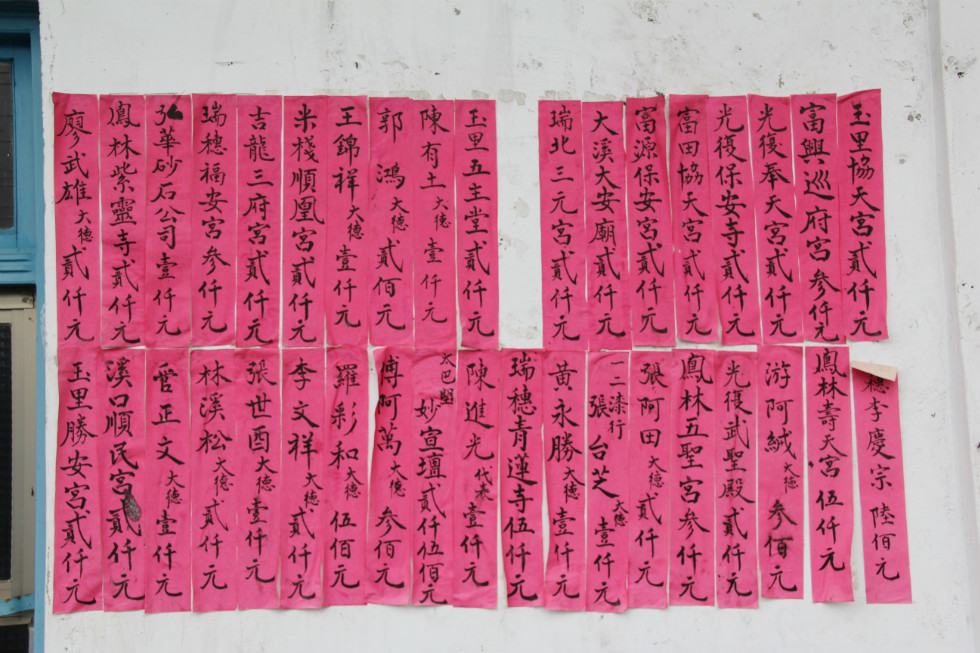 玉里協天宮貳仟元
富興巡府宮參仟元
光復奉天宮貳仟元
光復保安寺貳仟元
富田協天宮貳仟元
富源保安宮貳仟元
大溪大安廟貳仟元
瑞北三元宮貳仟元
玉里五主堂貳仟元
陳有土大德壹仟元
郭鴻大德貳佰元
王錦祥大德壹仟元
米棧順凰宮貳仟元
吉龍三府宮貳仟元
瑞穗福安宮參仟元
華砂石公司壹仟元
鳳林紫靈寺貳仟元
廖武雄大德貳仟元
穗李慶宗陸佰元
鳳林壽天宮伍仟元
游阿絨大德參佰元
光復武聖殿貳仟元
鳳林五聖宮參仟元
張阿田大德貳仟元
一二漆行張台芝大德壹仟元
黃永勝大德壹仟元
瑞穗青蓮寺伍仟元
陳進光代表壹仟元
太巴塱妙宣壇貳仟伍佰元
傅阿萬大德參佰元
羅彩和大德伍佰元
李文祥大德貳仟元
張世酉大德壹仟元
林溪松大德貳仟元
管正文大德壹仟元
溪口順民宮貳仟元
玉里勝安宮貳仟元